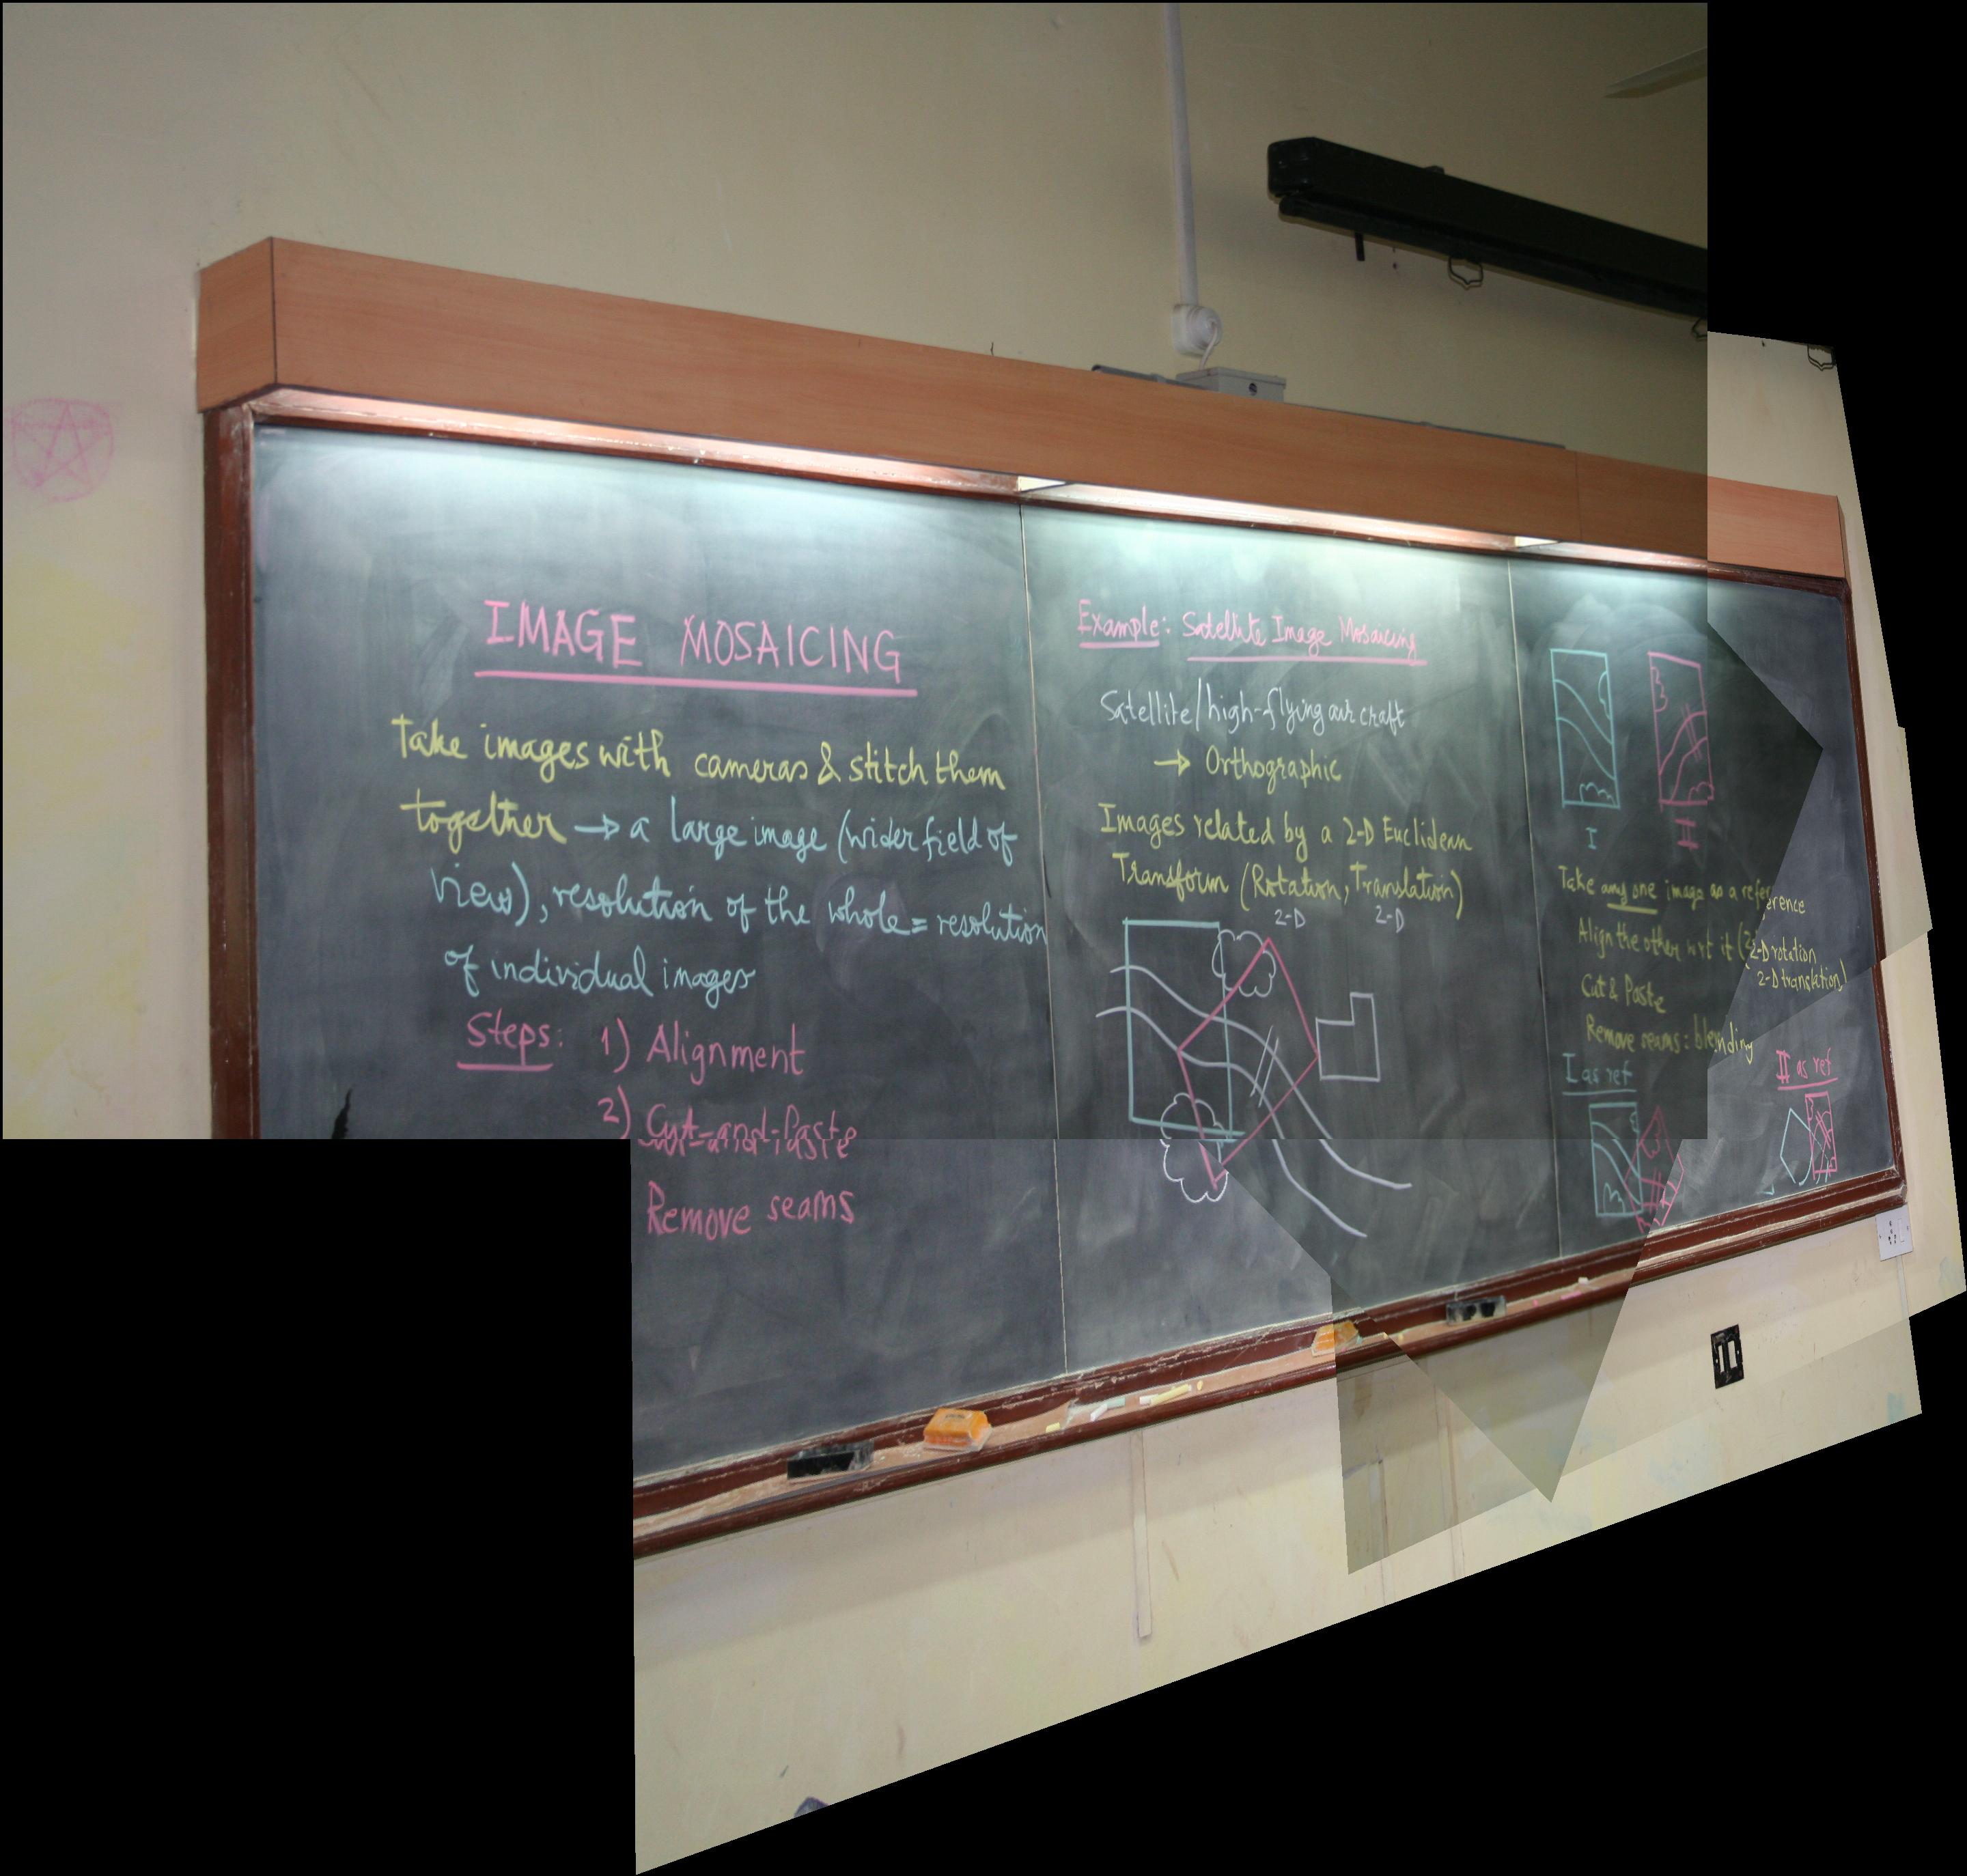 IMAGE MOSAICING
Take images with cameras & stitch them
together → a large image (wider field of
view), resolution of the whole = resolution
of individual images
Steps: 1) Alignment
2) Cut-and-Paste
Remove seams
Example: Satellite Image Mosaicing
Satellite/high-flying aircraft
→ Orthographic
Images related by a 2-D Euclidean
Transform (Rotation, Translation)
2-D 2-D
I II
Take any one image as a reference
Align the other wrt it (2-D rotation
2-D translation)
Cut & Paste
Remove seams: blending
I as ref
II as ref